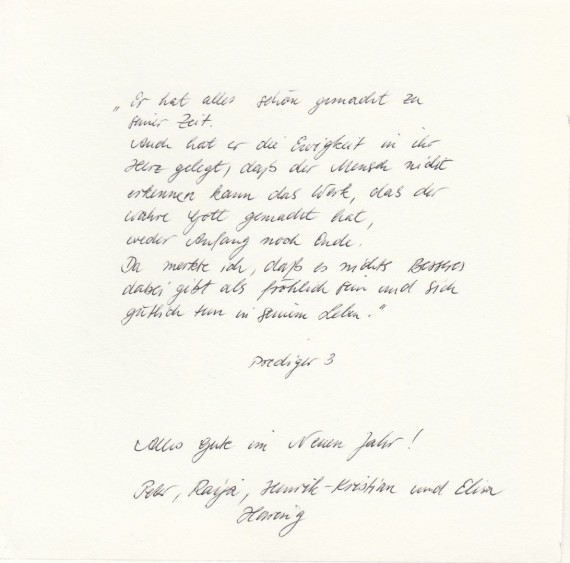 „Er hat alles schön gemacht zu
seiner Zeit.
Auch hat er die Ewigkeit in ihr
Herz gelegt, daß der Mensch nicht
erkennen kann das Werk, das der
wahre Gott gemacht hat,
weder Anfang noch Ende.
Da merkte ich, daß es nichts Besseres
dabei gibt als fröhlich sein und sich
gütlich tun in seinem Leben."
Prediger 3
Alles Gute im Neuen Jahr!
Peter, Raija, Henrik-Kristian und Elisa